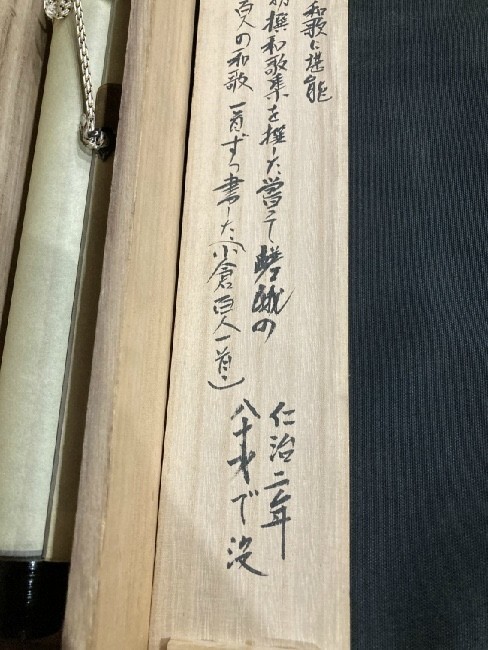 和歌に堪能
撰和歌集を撰した嘗て嵯峨の
百人の和歌一首ずつ書した(小倉百人一首)
仁治二年
八十才で没